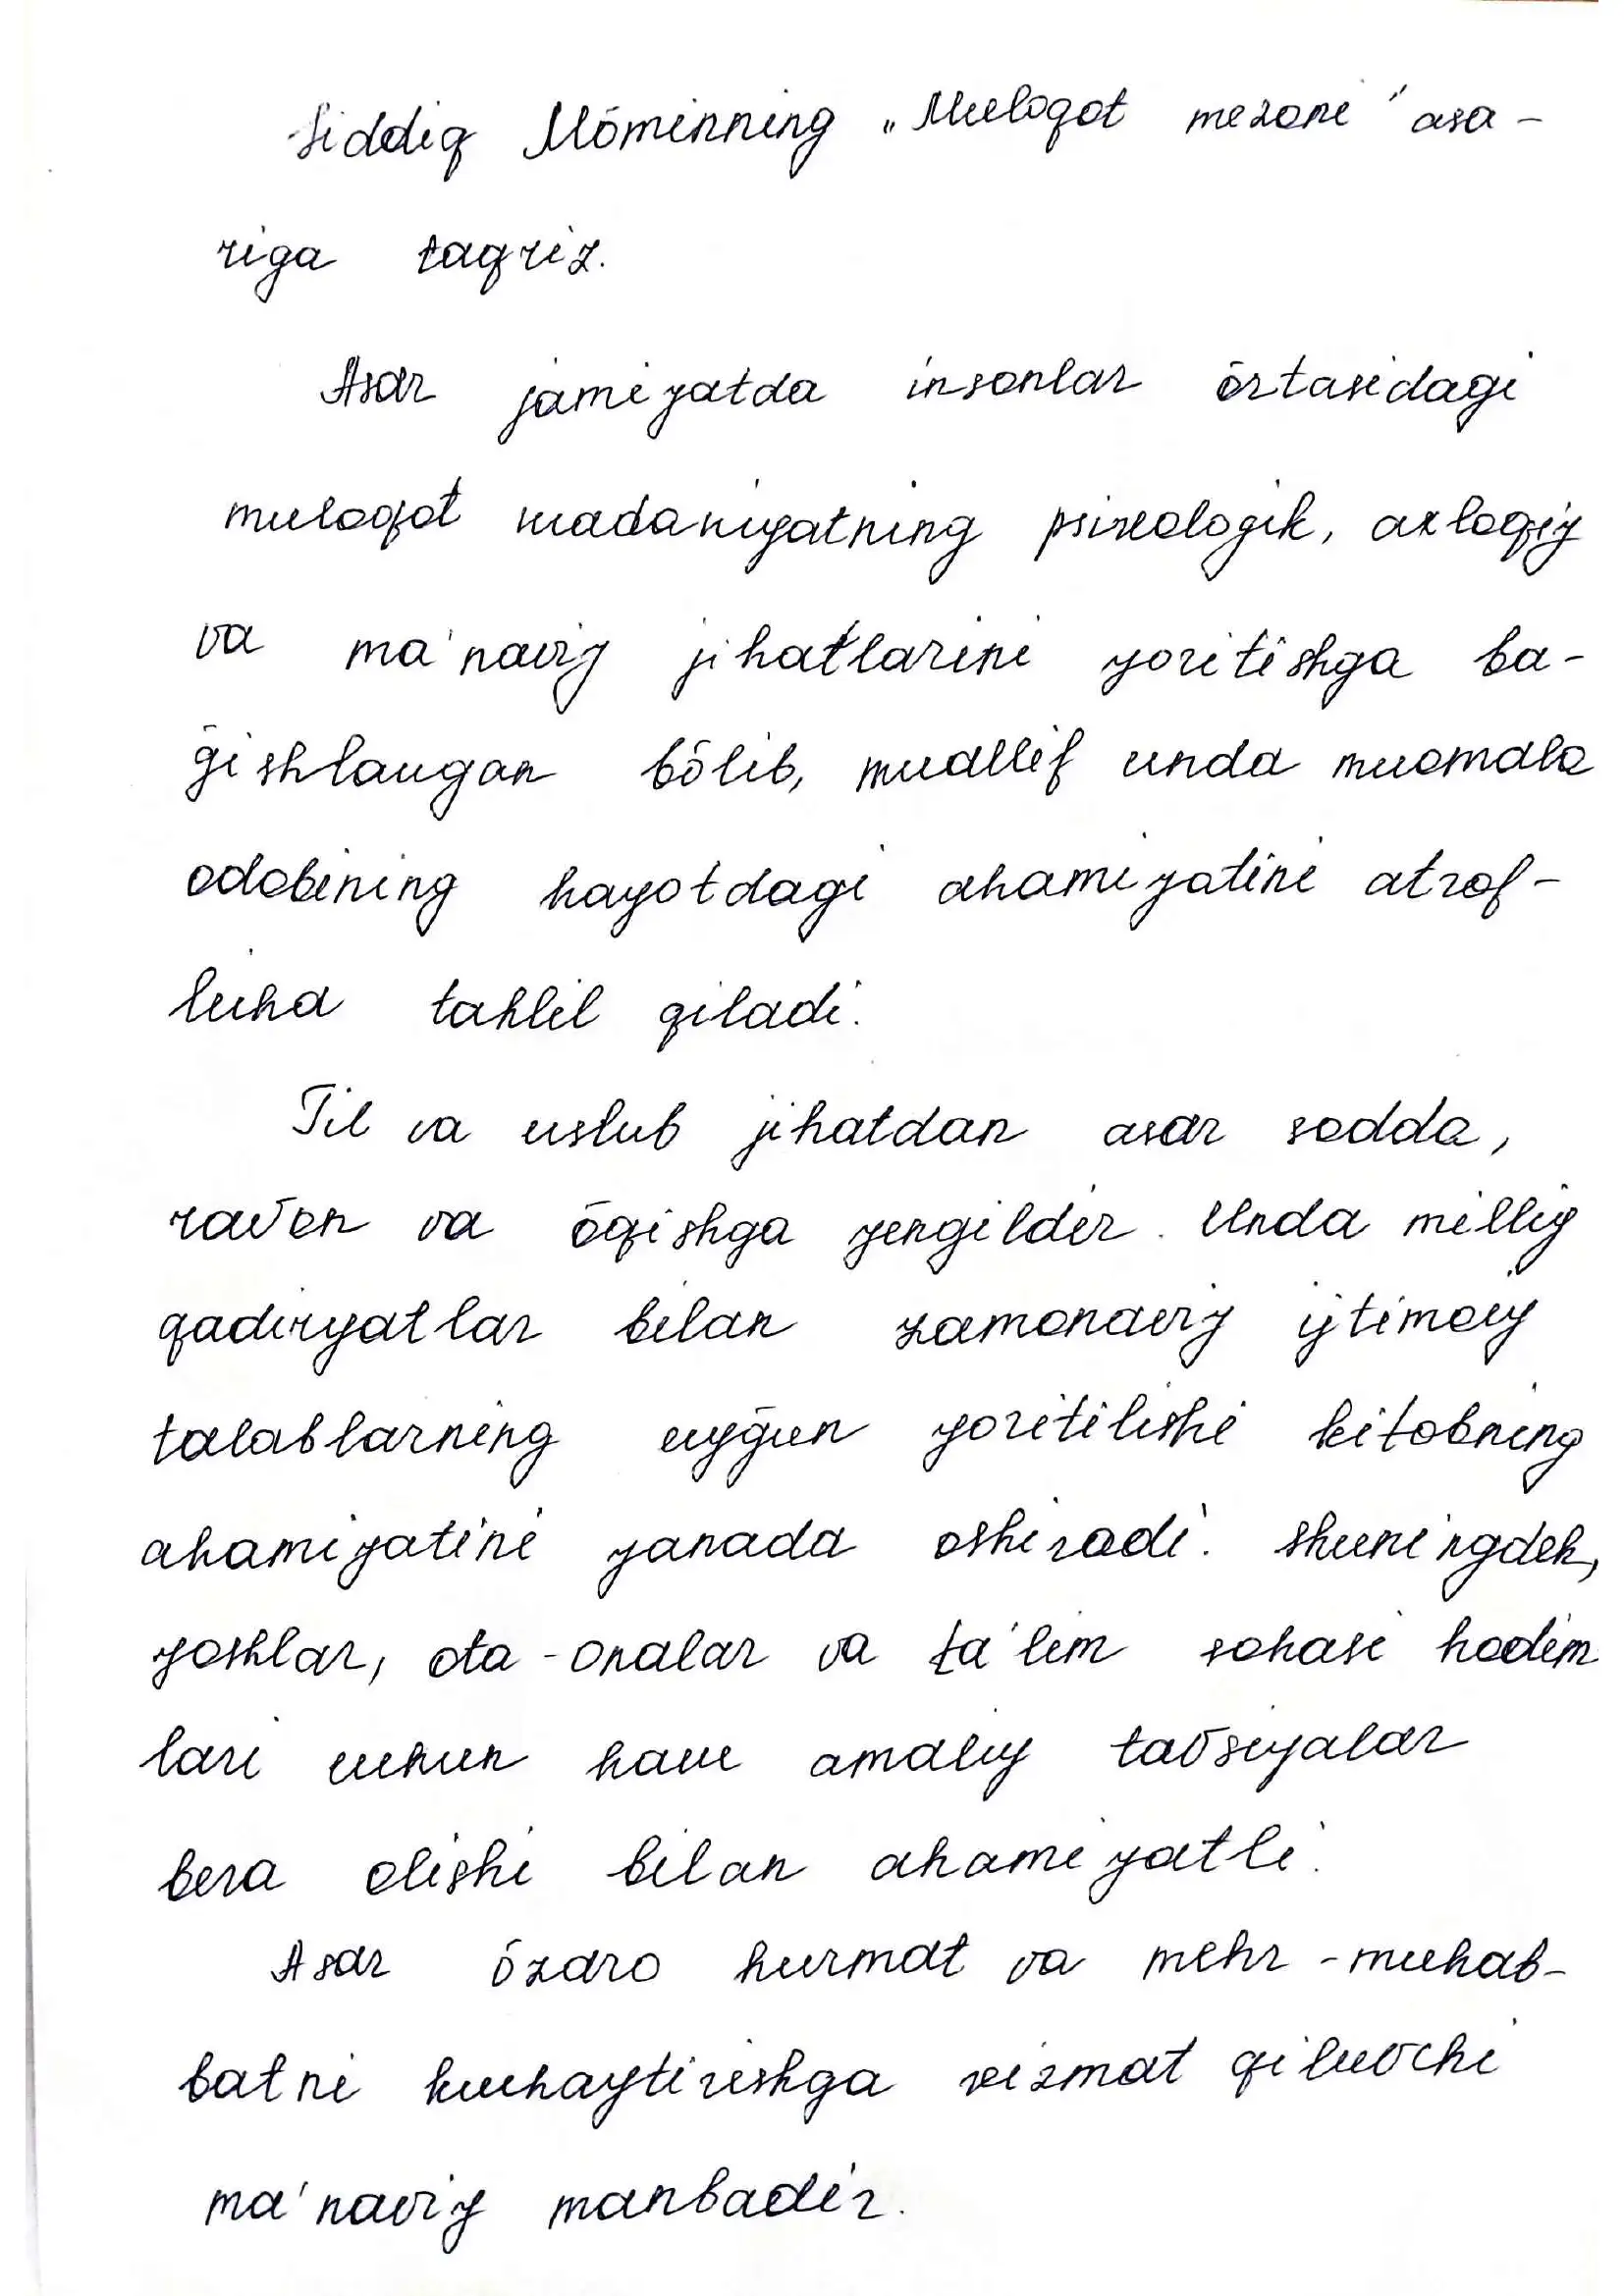 Siddiq Mōminning „Muloqot mezoni" asa-
riga taqriz.
Asar jamiyatda insonlar ōrtasidagi
muloqot madaniyatning psixologik, axloqiy
va ma'naviy jihatlarini yoritishga ba-
ḡishlangan bōlib, muallif unda muomala
odobining hayotdagi ahamiyatini atrof-
licha tahlil qiladi.
Til va uslub jihatdan asar sodda,
ravon va ōqishga yengildir. Unda milliy
qadiryatlar bilan zamonaviy ijtimoiy
talablarning uyḡun yoritilishi kitobning
ahamiyatini yanada oshiradi. Shuningdek,
yoshlar, ota-onalar va ta'lim sohasi hodim
lari uchun ham amaliy tavsiyalar
bera olishi bilan ahamiyatli.
Asar ōzaro hurmat va mehr-muhab-
batni kuchaytirishga xizmat qiluvchi
ma'naviy manbadir.